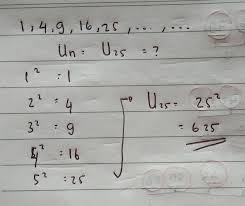 1, 4, 9, 16, 25, ..., ...
Un = U25 = ?
1² = 1
2² = 4
3² = 9
4² = 16
5² = 25
U25 = 25²
= 625